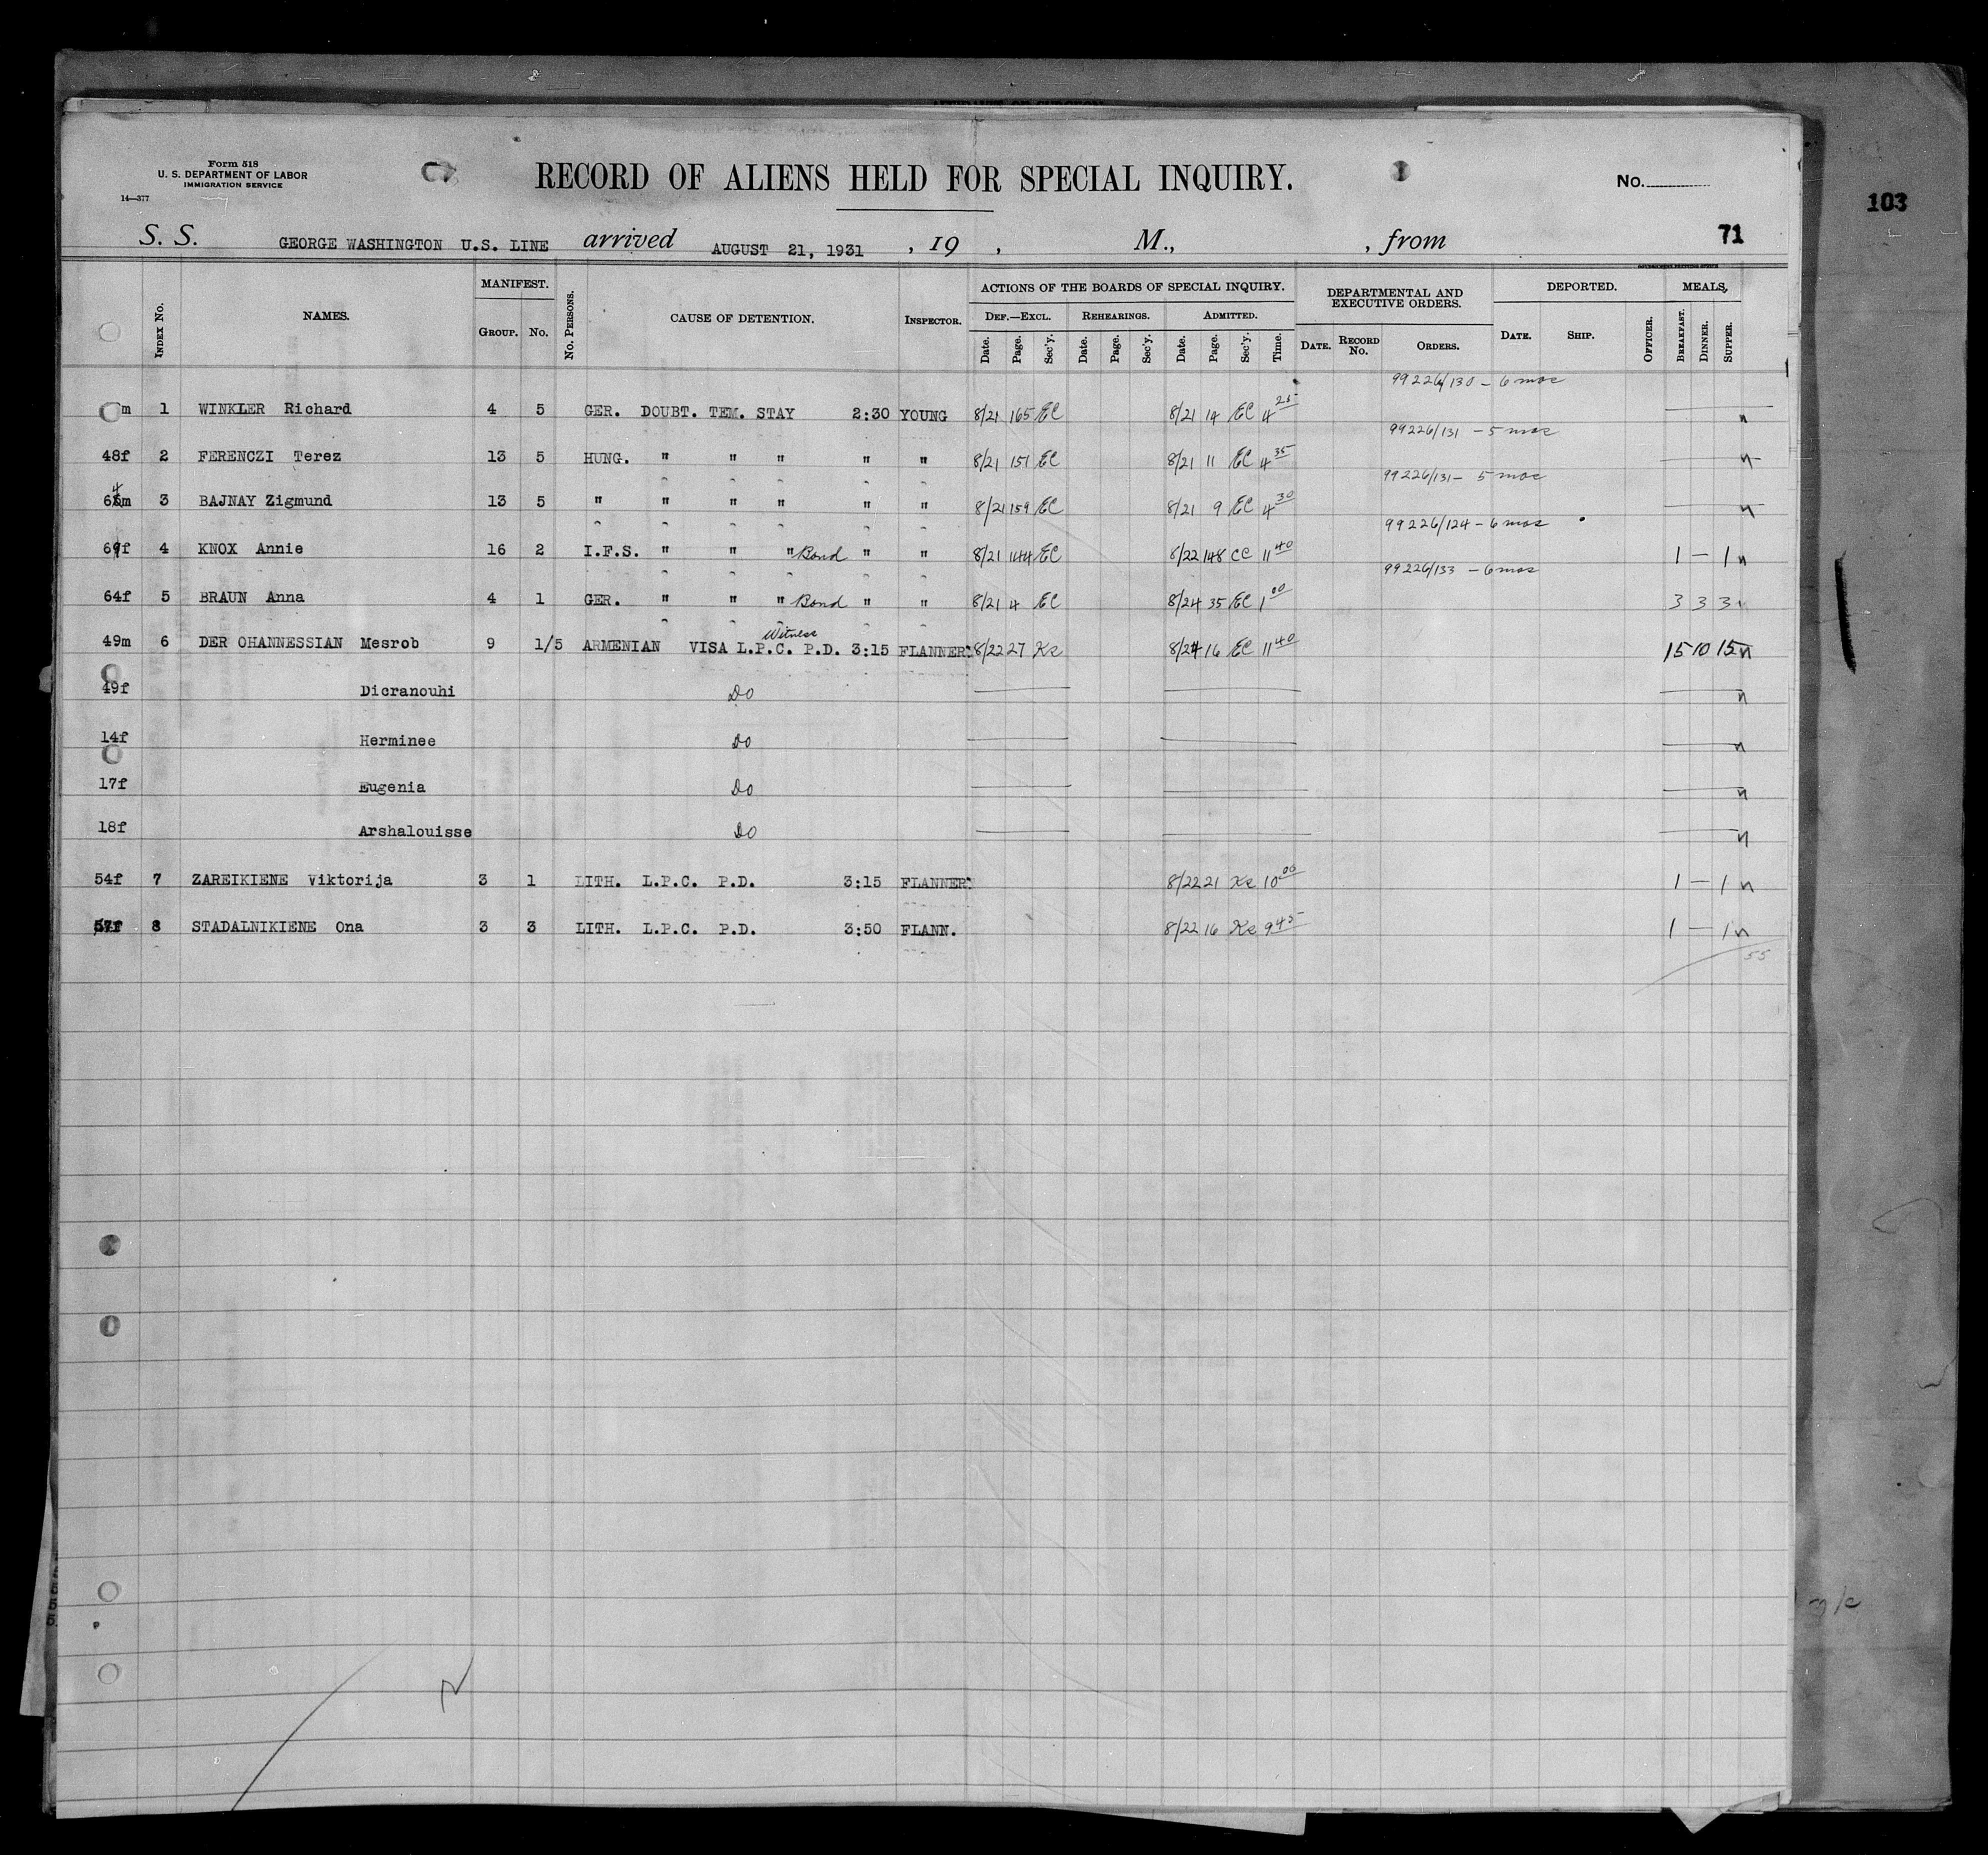 Form 518
U. S. DEPARTMENT OF LABOR
IMMIGRATION SERVICE
14—377
RECORD OF ALIENS HELD FOR SPECIAL INQUIRY.
No.
103
S. S. GEORGE WASHINGTON U.S. LINE arrived AUGUST 21, 1931 , 19 , M., , from 71
INDEX NO. NAMES. MANIFEST. GROUP. NO. NO. PERSONS. CAUSE OF DETENTION. INSPECTOR. ACTIONS OF THE BOARDS OF SPECIAL INQUIRY. DEPARTMENTAL AND EXECUTIVE ORDERS. DEPORTED. MEALS,
DEF.—EXCL. REHEARINGS. ADMITTED.
Date. Page. Sec'y. Date. Page. Sec'y. Date. Page. Sec'y. Time. DATE. RECORD NO. ORDERS. DATE. SHIP. OFFICER. BREAKFAST. DINNER. SUPPER.
99226/130 – 6 mos
m 1 WINKLER Richard 4 5 GER. DOUBT. TEM. STAY 2:30 YOUNG 8/21 165 EC 8/21 14 EC 4 25 — n
99226/131 – 5 mos
48f 2 FERENCZI Terez 13 5 HUNG. " " " " " 8/21 151 EC 8/21 11 EC 4 35 — n
99226/131 – 5 mos
64m 3 BAJNAY Zigmund 13 5 " " " " " " 8/21 159 EC 8/21 9 EC 4 30 — n
99226/124 – 6 mos
f 4 KNOX Annie 16 2 I.F.S. " " " Bond " " 8/21 144 EC 8/22 148 CC 11 40 1 — 1 n
99226/133 – 6 mos
64f 5 BRAUN Anna 4 1 GER. " " " Bond " " 8/21 4 EC 8/24 35 EC 1 00 3 3 3
Witness
49m 6 DER OHANNESSIAN Mesrob 9 1/5 ARMENIAN VISA L.P.C. P.D. 3:15 FLANNERY 8/22 27 Ke 8/24 16 EC 11 40 15 10 15 n
49f Dicranouhi Do — — — n
14f Herminee Do — — — n
17f Eugenia Do — — — n
18f Arshalouisse Do — — — n
54f 7 ZAREIKIENE Viktorija 3 1 LITH. L.P.C. P.D. 3:15 FLANNERY 8/22 21 Ke 10 00 1 — 1 n
57f 8 STADALNIKIENE Ona 3 3 LITH. L.P.C. P.D. 3:50 FLANN. 8/22 16 Ke 9 45 1 — 1 n
55